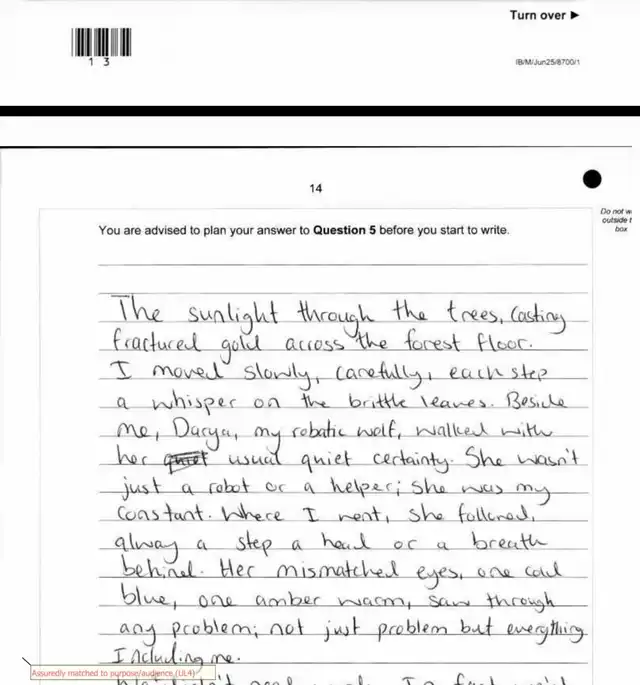 Turn over ►
1 3
IB/M/Jun25/8700/1
14
Do not w
outside t
box
You are advised to plan your answer to Question 5 before you start to write.
The sunlight through the trees, casting
fractured gold across the forest floor.
I moved slowly, carefully, each step
a whisper on the brittle leaves. Beside
me, Darya, my robatic wolf, walked with
her quiet usual quiet certainty. She wasn't
just a robot or a helper; she was my
constant. Where I went, she followed,
alway a step a head or a breath
behind. Her mismatched eyes, one cold
blue, one amber warm, saw through
any problem; not just problem but everything
Including me.
Assuredly matched to purpose/audience (UL4)